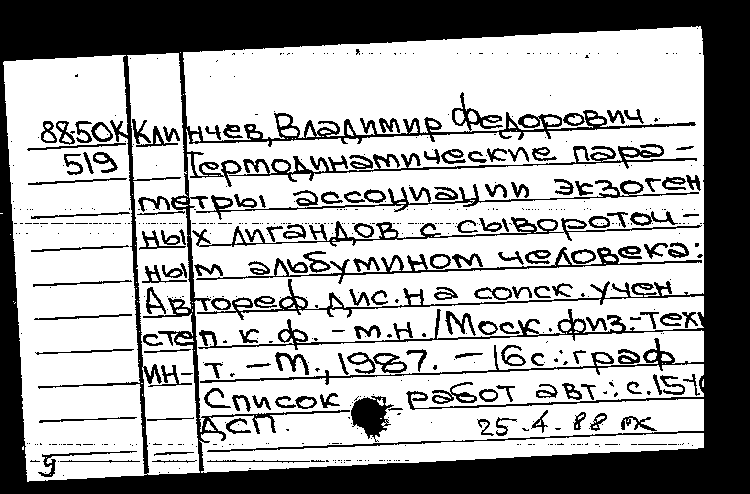 88-50К Клинчев, Владимир Федорович.
519 Термодинамические пара-
метры ассоциации экзоген
ных лигандов с сывороточ-
ным альбумином человека:
Автореф. дис. на соиск. учен.
степ. к. ф. - м. н. /Моск. физ.-техн
ин-т. - М., 1987. - 16 с.: граф.
Список работ авт.: с. 15-
ДСП.
25.4.88
9